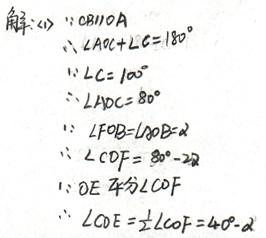 解:<1> ∵ CB∥OA
∴ ∠AOC+∠C=180°
∵ ∠C=100°
∴ ∠AOC=80°
∵ ∠FOB=∠AOB=α
∴ ∠COF=80°-2α
∵ OE平分∠COF
∴ ∠COE=½∠COF=40°-α